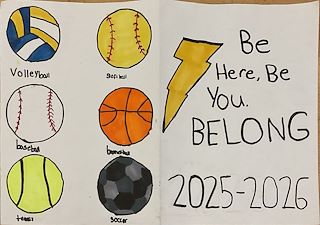 Volleyball
softball
baseball
basketball
tennis
soccer
Be
Here, Be
You.
BELONG
2025-2026